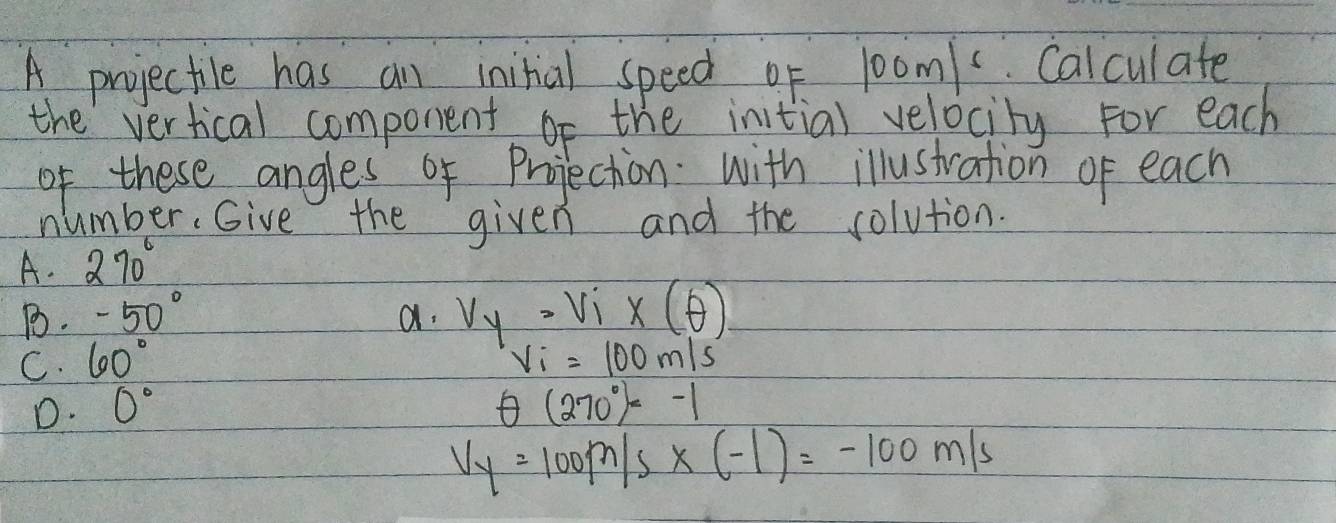 A projectile has an initial speed of 100m/s. Calculate
the vertical component of the initial velocity for each
of these angles of Projection. With illustration of each
number. Give the given and the solution.
A. 270°
B. -50°
C. 60°
D. 0°
a. Vy = Vi x (θ)
Vi = 100 m/s
θ (270°)= -1
Vy = 100m/s x (-1) = -100 m/s